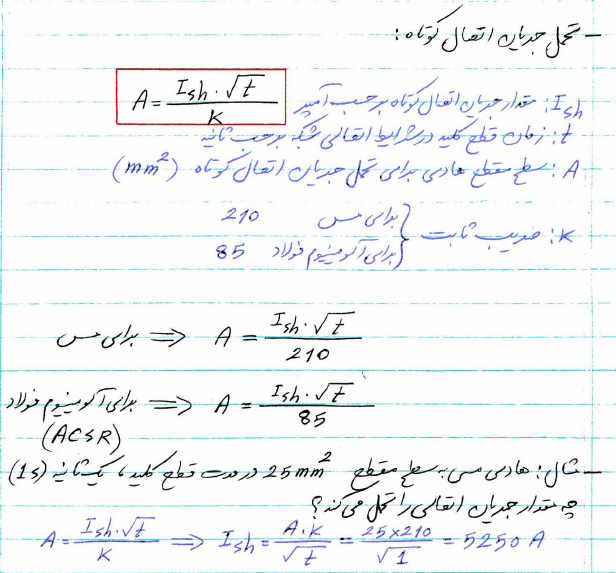 – تحمل جریان اتصال کوتاه:
A = Ish·√t / k
Ish: مقدار جریان اتصال کوتاه برحسب آمپر
t: زمان قطع کلید در شرایط اتصالی شبکه برحسب ثانیه
A: سطح مقطع هادی برای تحمل جریان اتصال کوتاه (mm²)
k: ضریب ثابت { برای مس 210
برای آلومینیوم فولاد 85
برای مس ⇒ A = Ish·√t / 210
برای آلومینیوم فولاد ⇒ A = Ish·√t / 85
(ACSR)
– مثال: هادی مسی به سطح مقطع 25mm² در مدت قطع کلید یکثانیه (1s)
چه مقدار جریان اتصالی را تحمل می‌کند؟
A = Ish·√t / k ⇒ Ish = A·k / √t = 25×210 / √1 = 5250 A